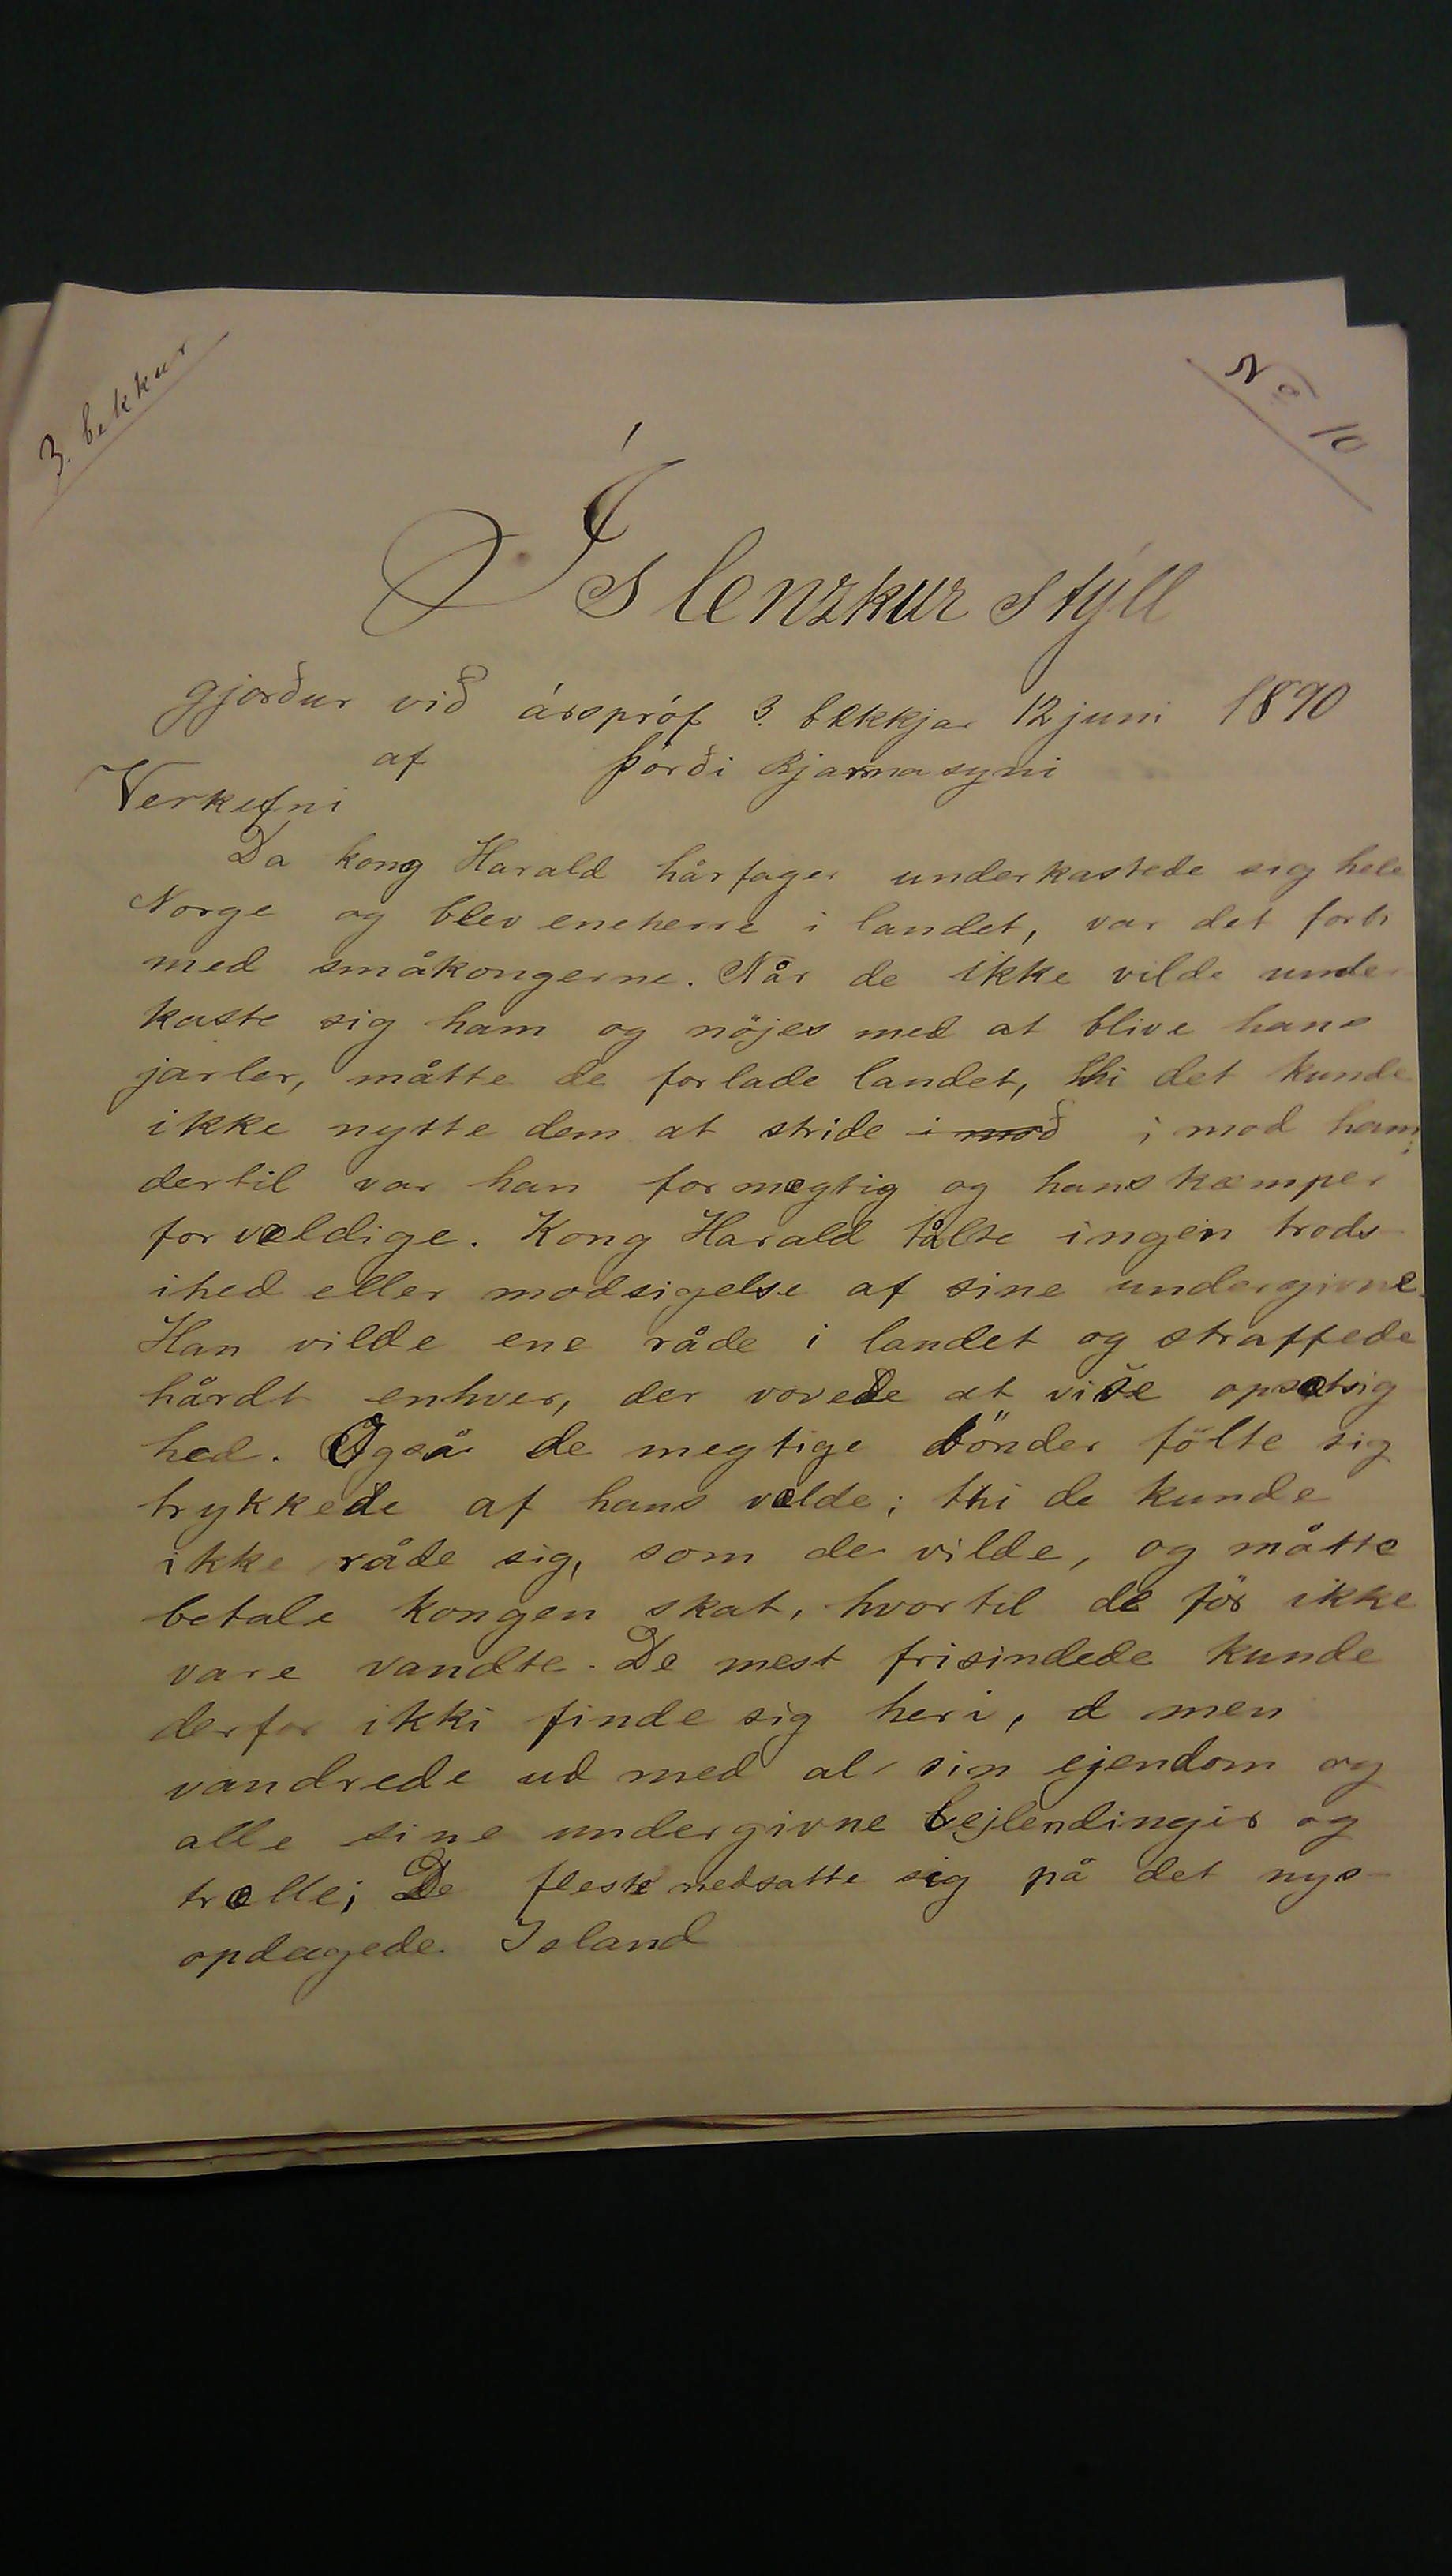 3. bekkur
No 10
Íslenzkur stýll
gjörður við árspróf 3. bekkjar 12 juni 1890
af Þórði Bjarnasyni
Verkefni
Da kong Harald hårfager underkastede sig hele
Norge og blev eneherre i landet, var det forbi
med småkongerne. Når de ikke vilde under
kaste sig ham og nöjes med at blive hans
jarler, måtte de forlade landet, thi det kunde
ikke nytte dem at stride i moð i mod ham;
dertil var han for mægtig og hans kæmper
for vældige. Kong Harald tålte ingen trods-
ihed eller modsigelse af sine undergivne.
Han vilde ene råde i landet og straffede
hårdt enhver, der vovede at vise opsætsig
hed. Også de megtige bönder fölte sig
trykkede af hans vælde; thi de kunde
ikke råde sig, som de vilde, og måtte
betale kongen skat, hvortil de för ikke
vare vandte. De mest frisindede kunde
derfor ikki finde sig heri, d men
vandrede ud med al sin ejendom og
alle sine undergivne lejlendinger og
trælle; De fleste nedsatte sig på det nys-
opdagede Island